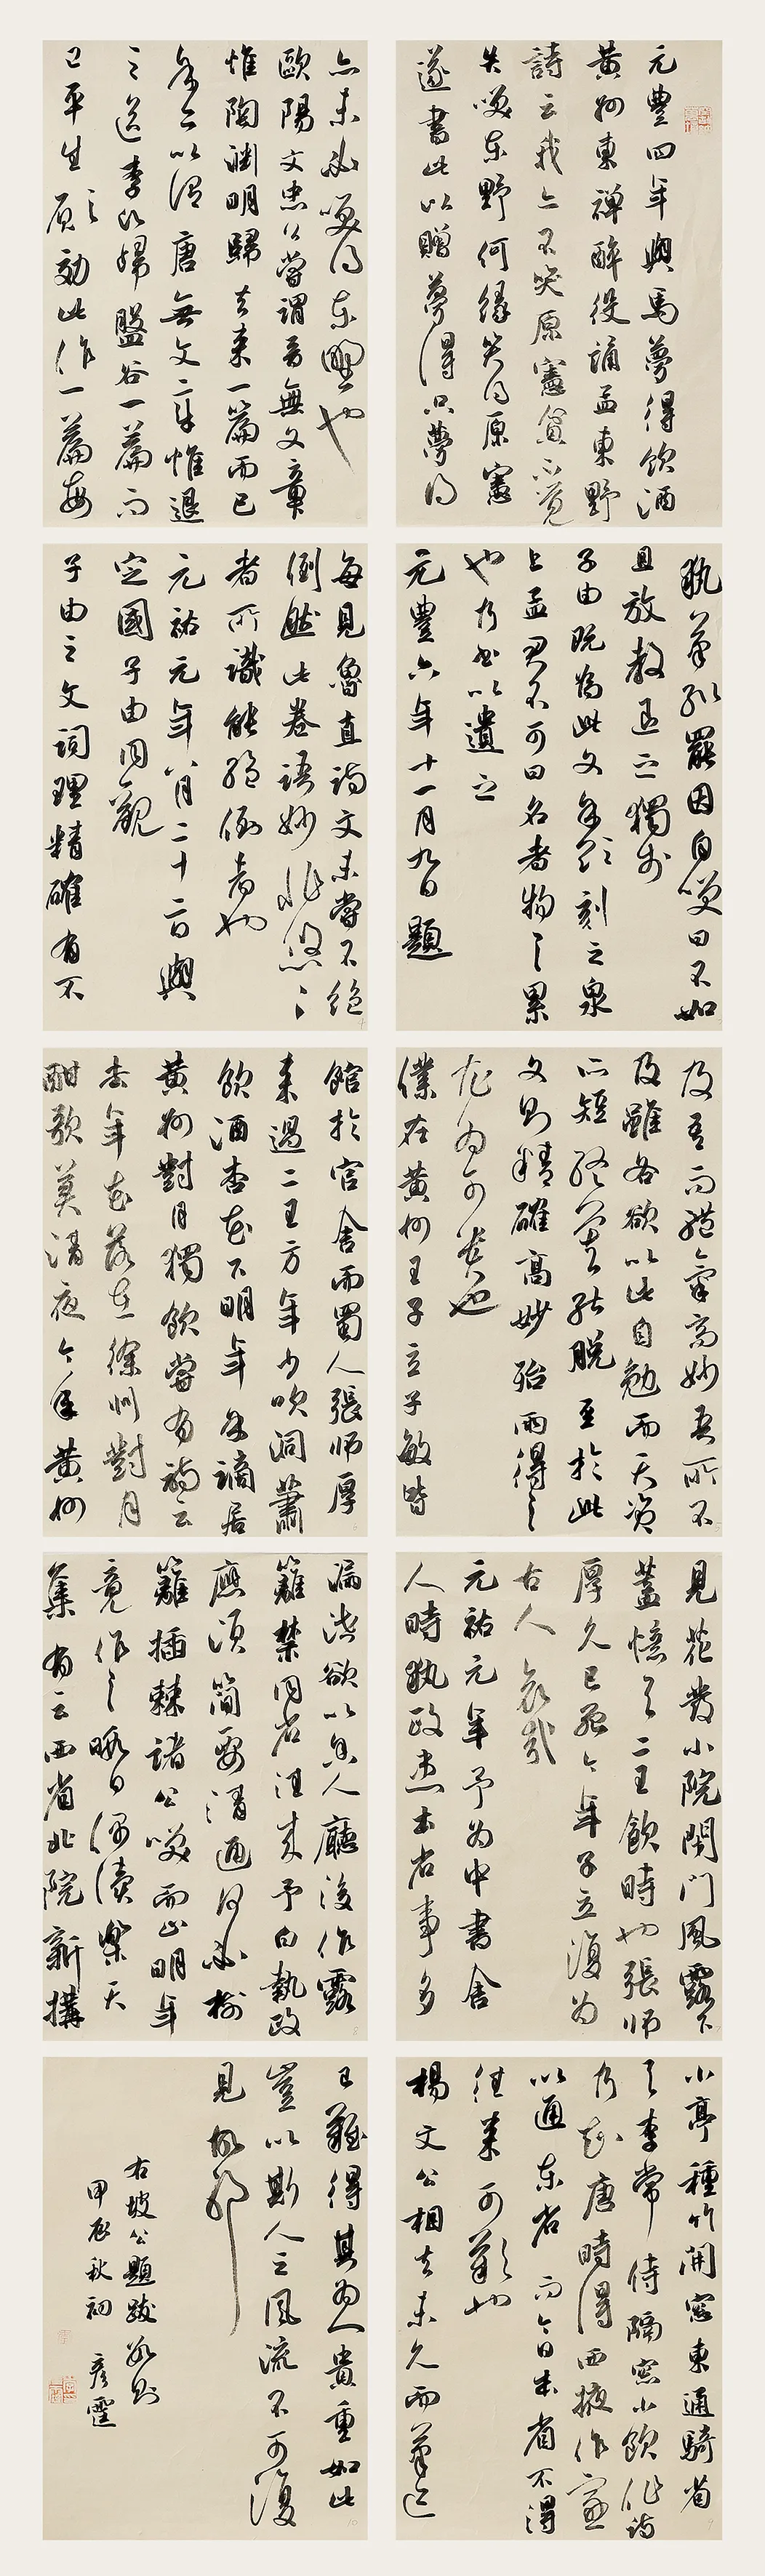 元豐四年與馬夢得飲酒
黃州東禪醉後誦孟東野
詩云我亦不笑原憲貧不覺
失笑東野何緣笑得原憲
遂書此以贈夢得只夢得
亦未必笑得東野也
歐陽文忠公嘗謂晉無文章
惟陶淵明歸去來一篇而已
余亦以謂唐無文章惟退
之送李愿歸盤谷一篇而
已平生願效此作一篇每
執筆輒罷因自笑曰不如
且放教退之獨步
子由既為此文余欲刻之泉
上孟君不可曰名者物之累
也乃書以遺之
元豐六年十一月九日題
每見魯直詩文未嘗不絕
倒然此卷語妙非悠〻
者所識能絕倒者也
元祐元年八月二十二日與
定國子由同觀
子由之文詞理精確有不
及吾而體氣高妙吾所不
及雖各欲以此自勉而天資
所短終莫能脫至於此
文則精確高妙殆兩得之
尤為可貴也
僕在黃州王子立子敏皆
館於官舍而蜀人張師厚
來過二王方年少吹洞簫
飲酒杏花下明年余謫居
黃州對月獨飲嘗有詩云
去年花落在徐州對月
酣歌美清夜今年黃州
見花發小院閉門風露下
蓋憶與二王飲時也張師
厚久已死今年子立復為
古人哀哉
元祐元年予為中書舍
人時執政患本省事多
漏泄欲以舍人廳後作露
籬禁同省往來予白執政
應須簡要清通何必樹
籬插棘諸公笑而止明年
竟作之暇日偶讀樂天
集有云西省北院新構
小亭種竹開窗東通騎省
與李常侍隔窗小飲作詩
乃知唐時得西掖作窗
以通東省而今日本省不得
往來可歎也
楊文公相去未久而筆跡
已難得其為人貴重如此
豈以斯人之風流不可復
見故耶
右坡公題跋數則
甲辰秋初 彥霆